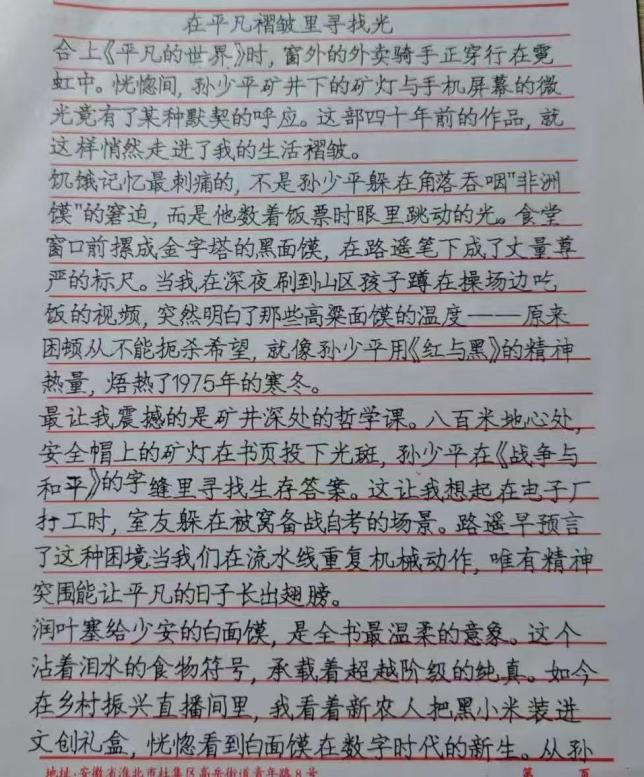 在平凡褶皱里寻找光
合上《平凡的世界》时，窗外的外卖骑手正穿行在霓
虹中。恍惚间，孙少平矿井下的矿灯与手机屏幕的微
光竟有了某种默契的呼应。这部四十年前的作品，就
这样悄然走进了我的生活褶皱。
饥饿记忆最刺痛的，不是孙少平躲在角落吞咽"非洲
馍"的窘迫，而是他数着饭票时眼里跳动的光。食堂
窗口前摞成金字塔的黑面馍，在路遥笔下成了丈量尊
严的标尺。当我在深夜刷到山区孩子蹲在操场边吃
饭的视频，突然明白了那些高粱面馍的温度——原来
困顿从不能扼杀希望，就像孙少平用《红与黑》的精神
热量，焐热了1975年的寒冬。
最让我震撼的是矿井深处的哲学课。八百米地心处，
安全帽上的矿灯在书页投下光斑，孙少平在《战争与
和平》的字缝里寻找生存答案。这让我想起在电子厂
打工时，室友躲在被窝备战自考的场景。路遥早预言
了这种困境当我们在流水线重复机械动作，唯有精神
突围能让平凡的日子长出翅膀。
润叶塞给少安的白面馍，是全书最温柔的意象。这个
沾着泪水的食物符号，承载着超越阶级的纯真。如今
在乡村振兴直播间里，我看着新农人把黑小米装进
文创礼盒，恍惚看到白面馍在数字时代的新生。从孙
地址：安徽省淮北市杜集区高岳街道青年路8号 第 页